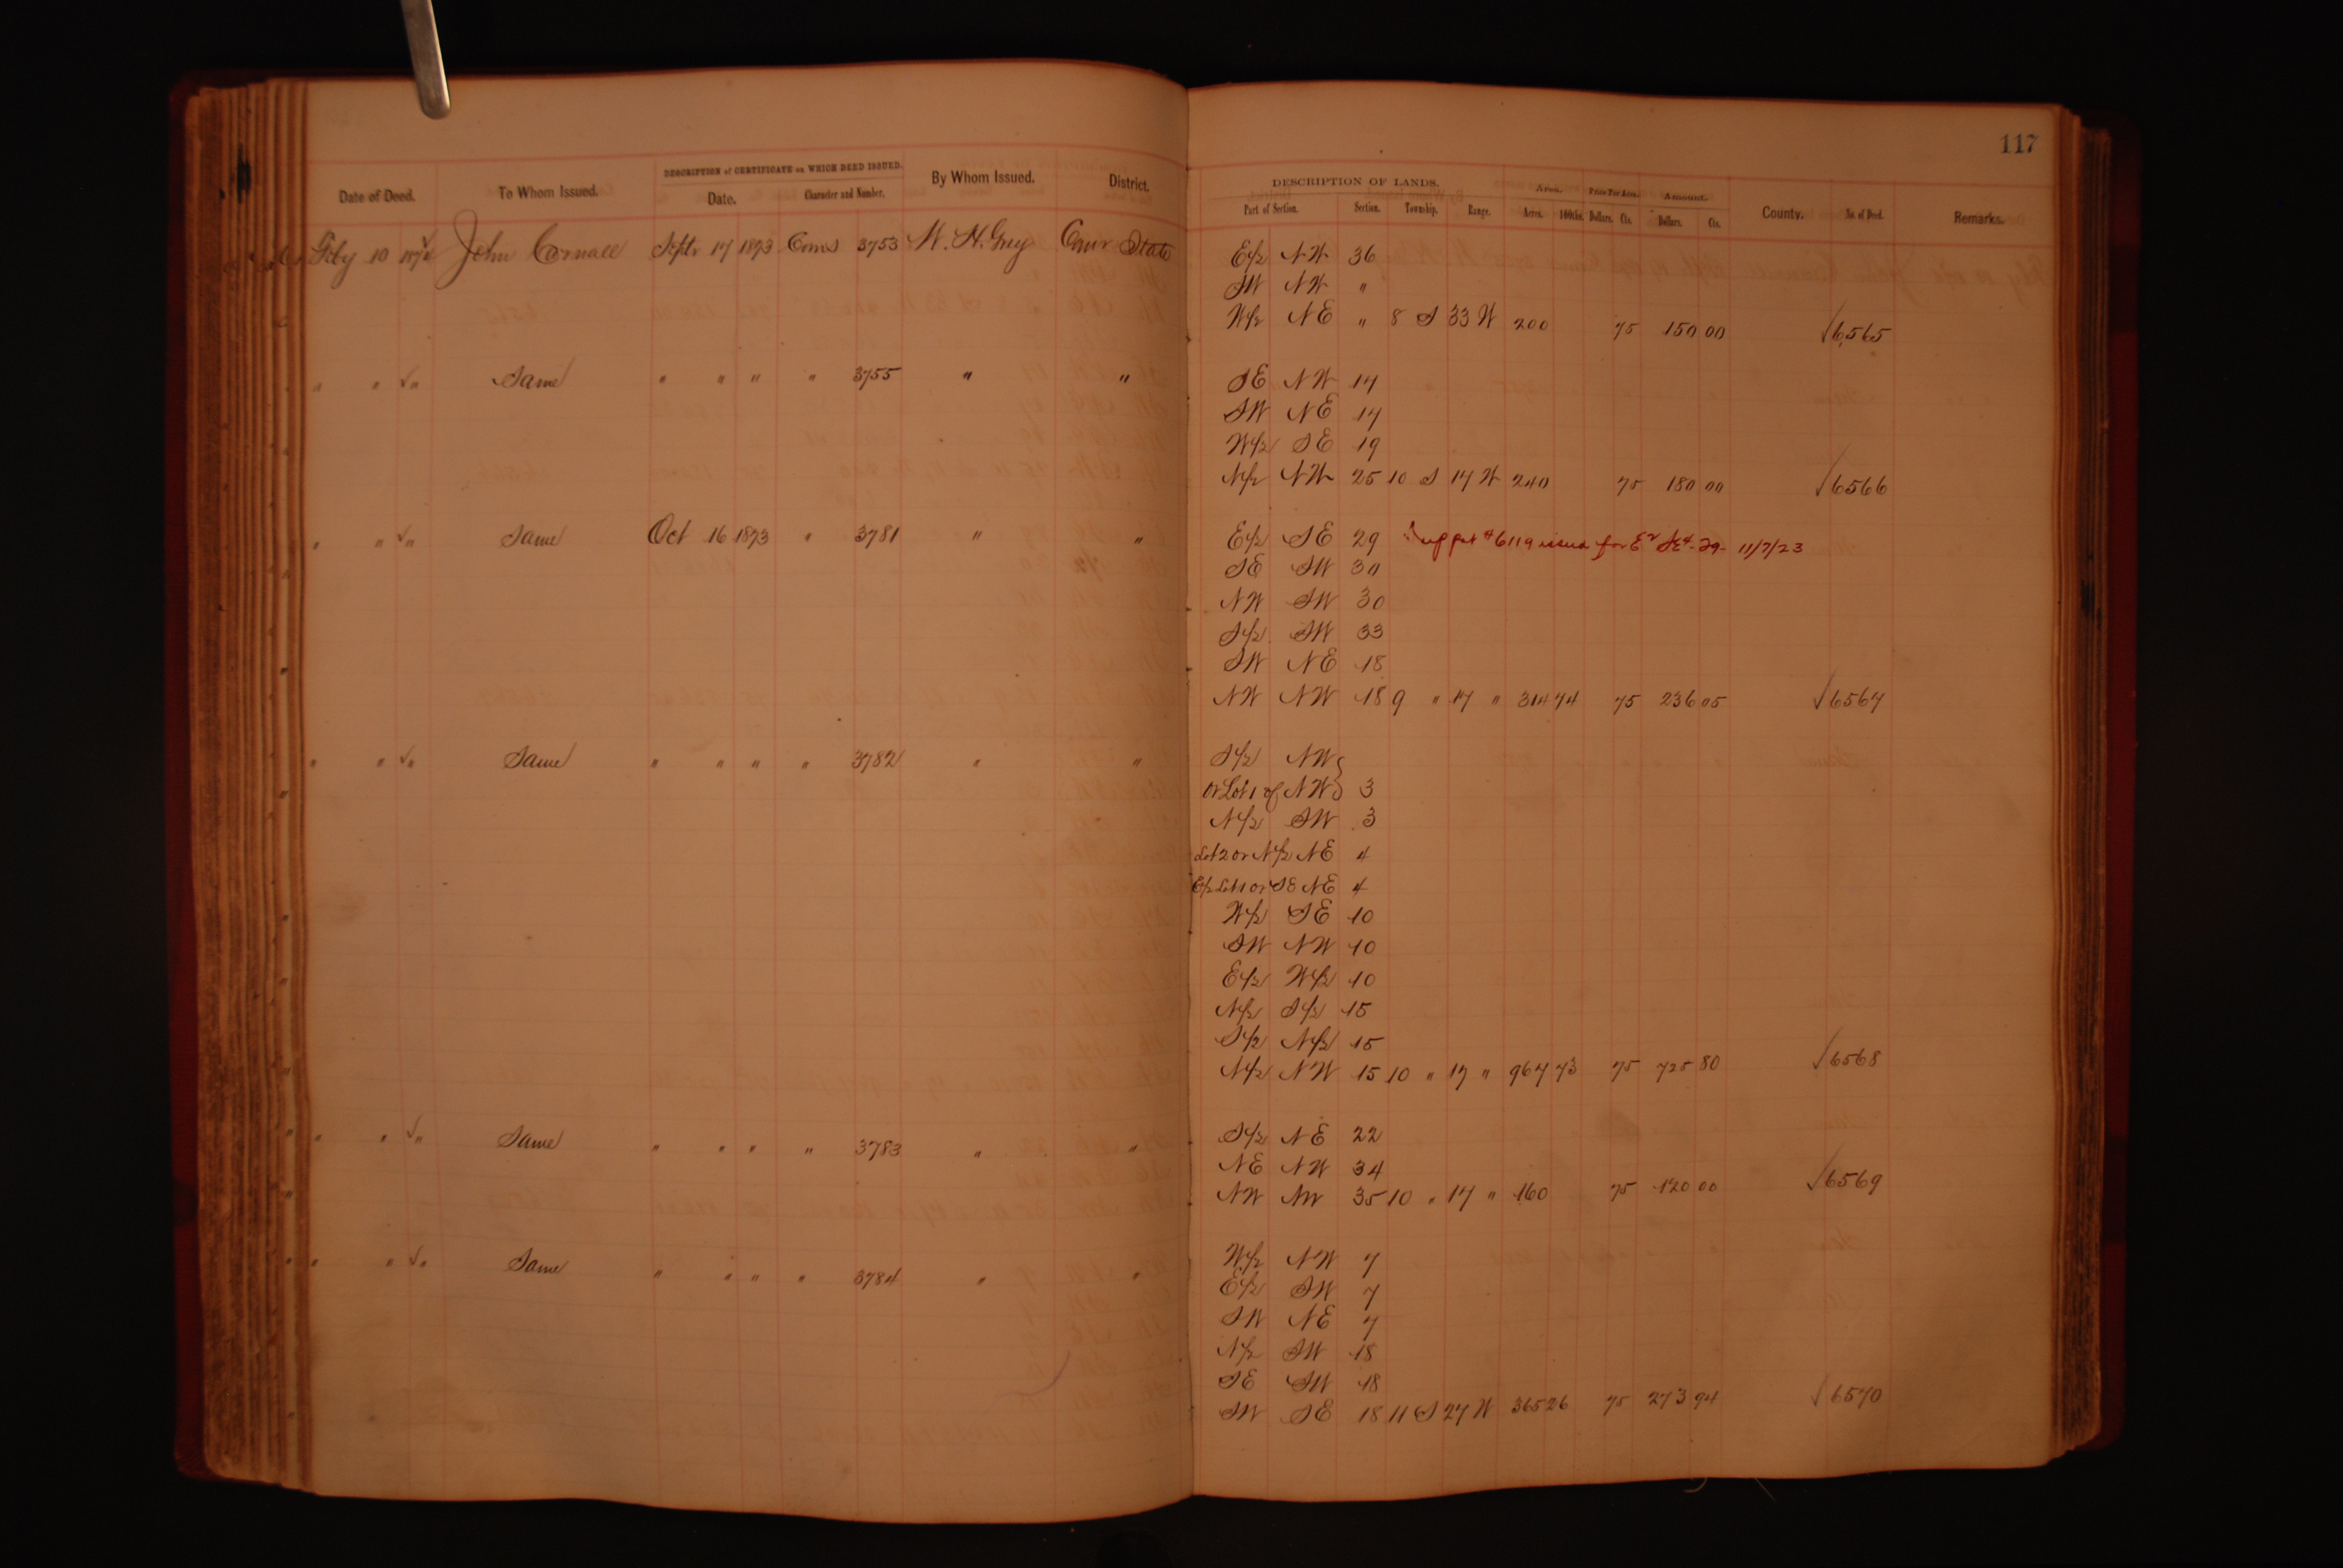 117
DESCRIPTION of CERTIFICATE on WHICH DEED ISSUED.
Date of Deed. To Whom Issued. Date. Character and Number. By Whom Issued. District.
DESCRIPTION OF LANDS. Area. Price Per Acre. Amount.
Part of Section. Section. Township. Range. Acres. 100ths. Dollars. Cts. Dollars. Cts. County. No. of Deed. Remarks.
10 John Carnall Septr 17 1873 3753 W. H. Grey State E/2 NW 36
SW NW "
W/2 NE " 8 S 33 W 200 75 150 00 √6565
" " √ " Same " " " " 3755 " " SE NW 14
SW NE 14
W/2 SE 19
N/2 NW 25 10 S 17 W 240 75 180 00 √6566
" " √ " Same Oct 16 1873 " 3781 " " E/2 SE 29 #6119 issued for E2 SE4-29- 11/7/23
SE SW 30
NW SW 30
S/2 SW 33
SW NE 18
NW NW 18 9 " 17 " 314 74 75 236 05 √6567
" " √ " Same " " " " 3782 " " S/2 NW }
or Lot 1 of NW } 3
N/2 SW 3
Lot 2 or N/2 NE 4
E/2 Lot 1 or SE NE 4
W/2 SE 10
SW NW 10
E/2 W/2 10
N/2 S/2 15
S/2 N/2 15
N/2 NW 15 10 " 17 " 967 73 75 725 80 √6568
" " √ " Same " " " " 3783 " " S/2 NE 22
NE NW 34
NW NW 35 10 " 17 " 160 75 120 00 √6569
" " √ " Same " " " " 3784 " " W/2 NW 7
E/2 SW 7
SW NE 7
N/2 SW 18
SE SW 18
SW SE 18 11 S 27 W 365 26 75 273 94 √6570